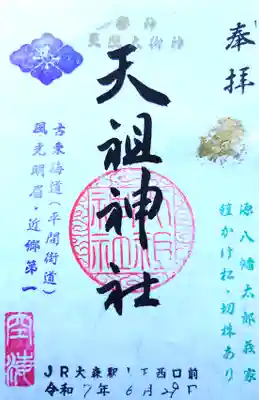 奉拝
御祭神
天照大御神
天祖神社
古東海道(平間街道)
風光明眉・近郷第一
源八幡太郎義家
鎧かけ松・切株あり
JR大森駅 西口前
令和7年6月29日